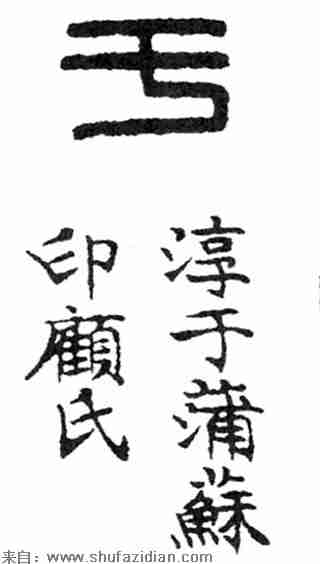 于
淳于蒲蘇
印顧氏
来自：www.shufazidian.com